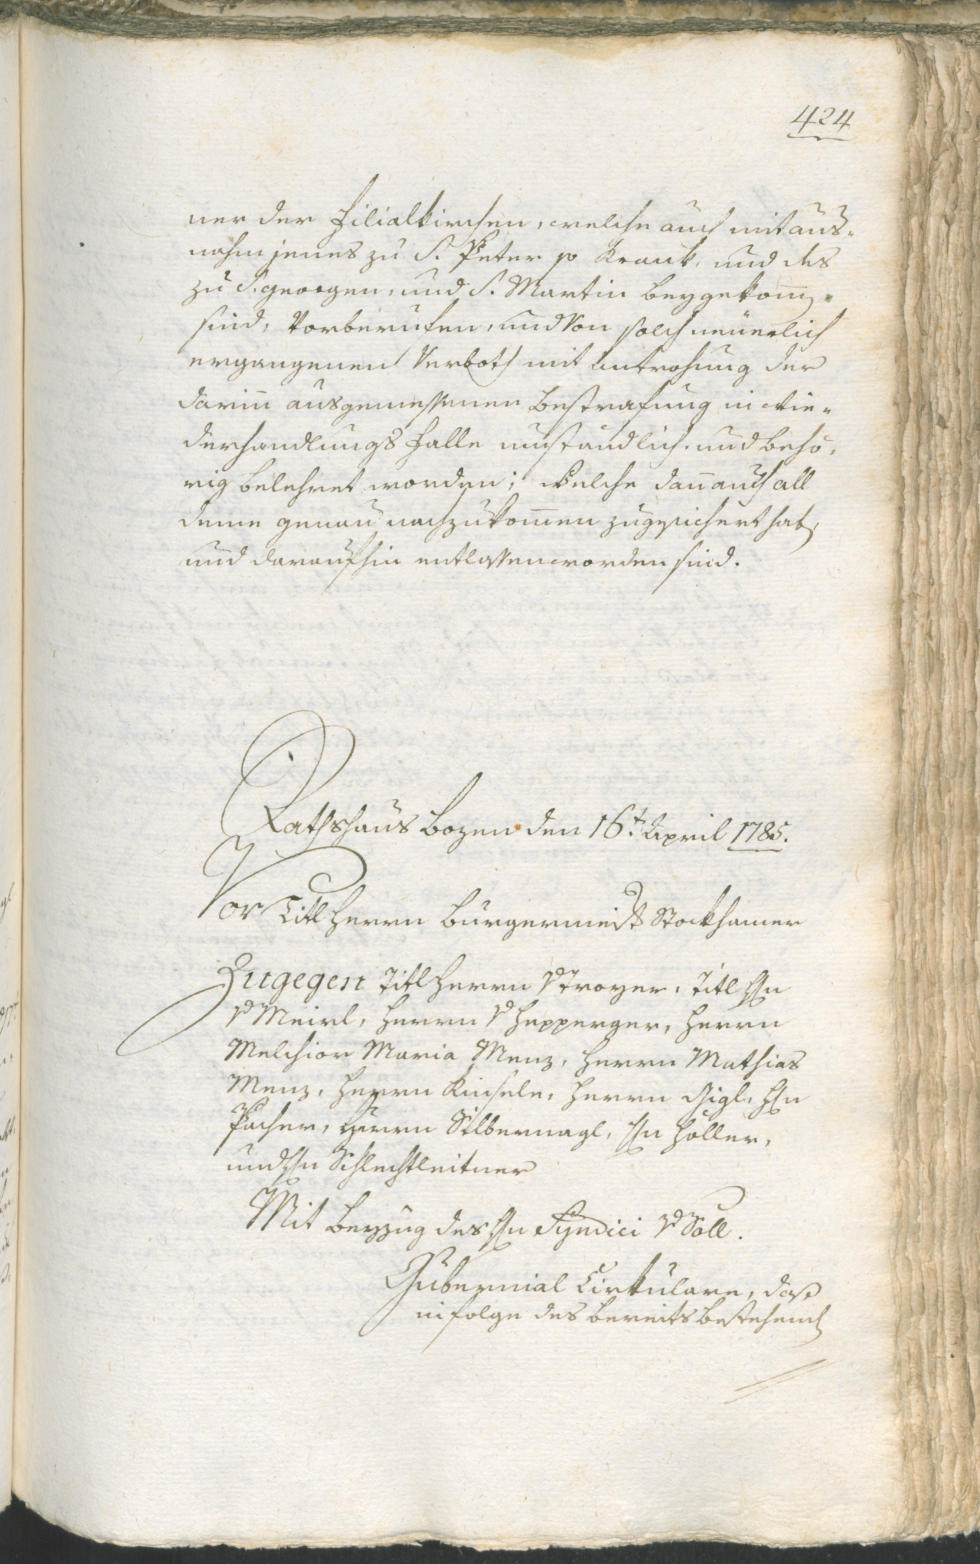 424
ner der Filialkirchen, welche auch mit aus-
nahm jenes zu S. Peter so krank, und des
zu S. georgen, und S. Martin beygekom̅en
sind, Vorberufen, und von solch neuerlich
ergangenen Verboth mit antrohung der
darinn ausgemessenen bestrafung in wie-
derhandlungs Falle umständlich und behö-
rig belehret worden; welche dan̅ auch all
deme genau nachzukom̅en zugesichert haben
und daraufhin entlassen worden sind.
Rathshaus bozen den 16t. April 1785.
Vor Titl Herrn bürgermeister Stockhamer
Zugegen Titl Herrn v Troyer, Titl Hrn
v Meirl, Herrn v Hepperger, Herrn
Melchior Maria Menz, Herrn Mathias
Menz, Herrn Kinsele, Herrn Gigl, Hrn
Pacher, Herrn Silbernagl, Hrn Holler,
und Hrn Schlechtleitner
Mit beyzug des Hrn Syndici v Söll.
Gubernial Cirkulare, daß
infolge des bereits bestehenden